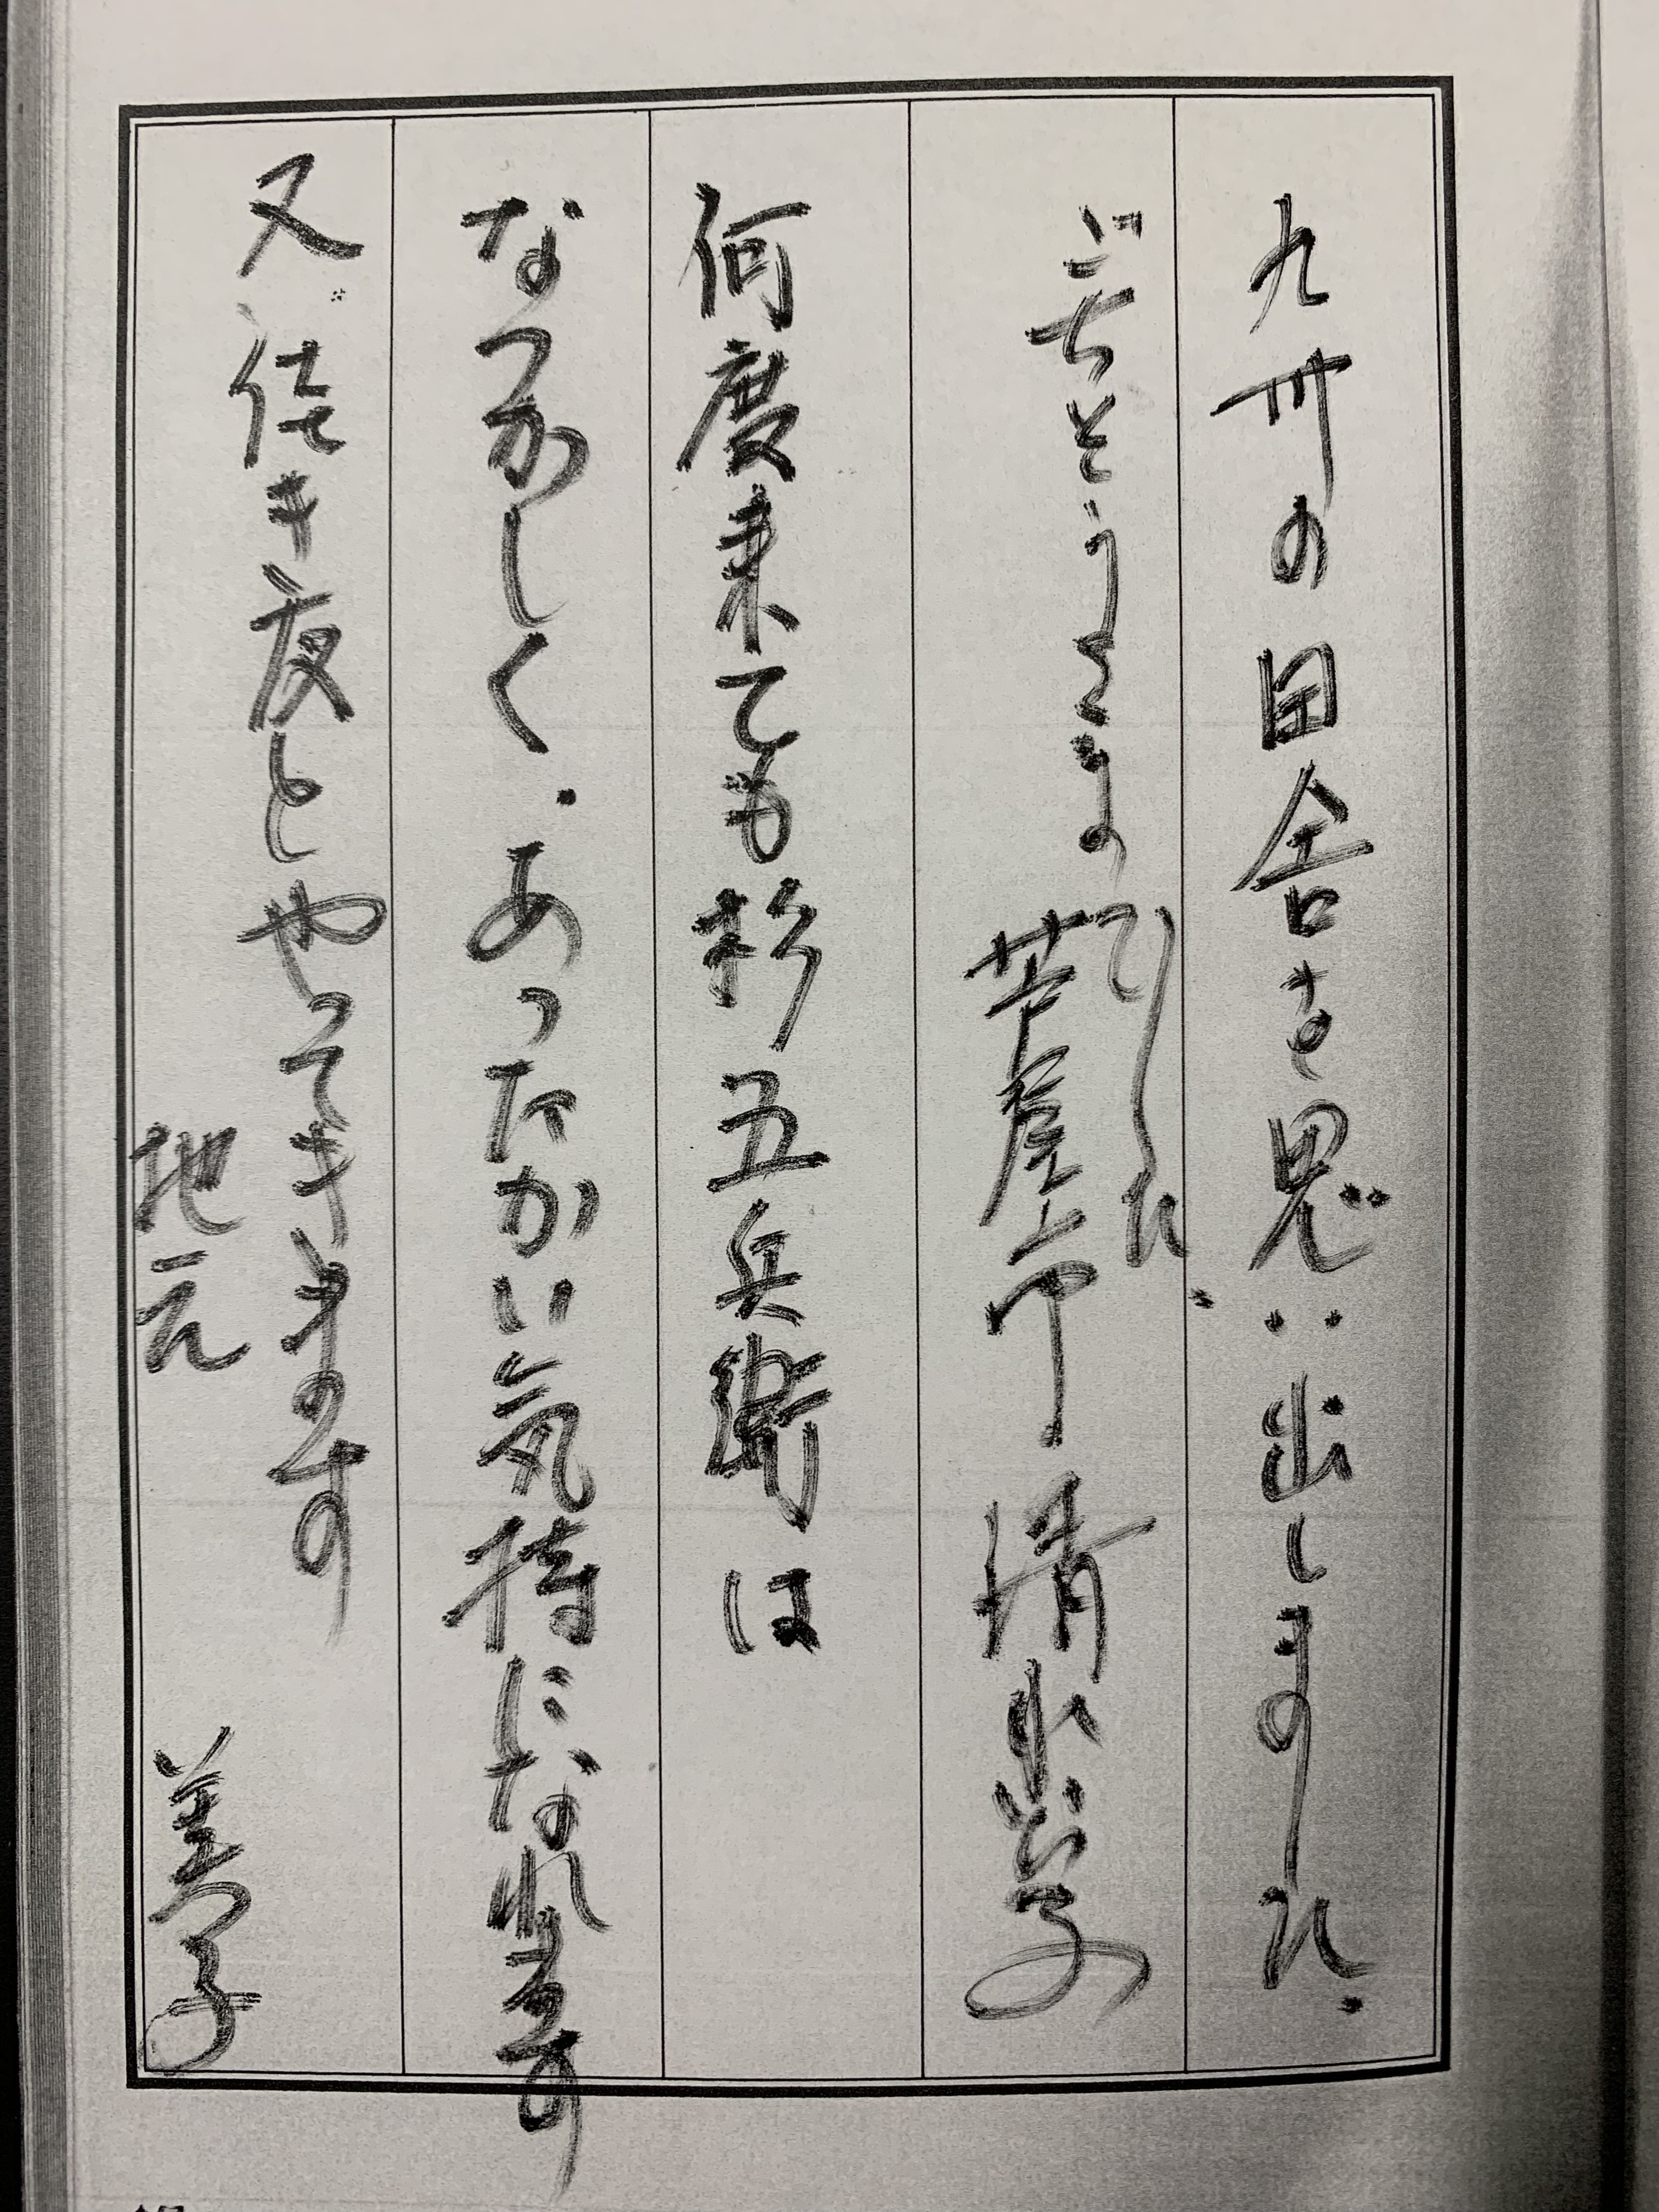 九州の田舎を思い出しました.
ごちそうさまでした.
芦屋市 清水 子
何度来ても杉五兵衛は
なつかしく.あったかい気持になれます
又 佳き夜とやってきます
地元 美子